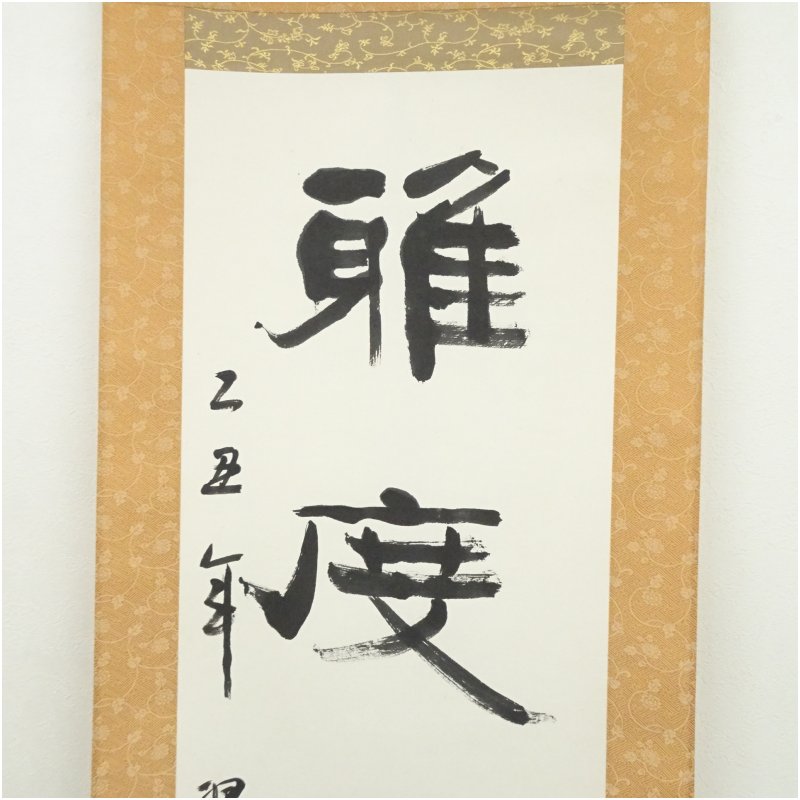 雅度
乙丑年